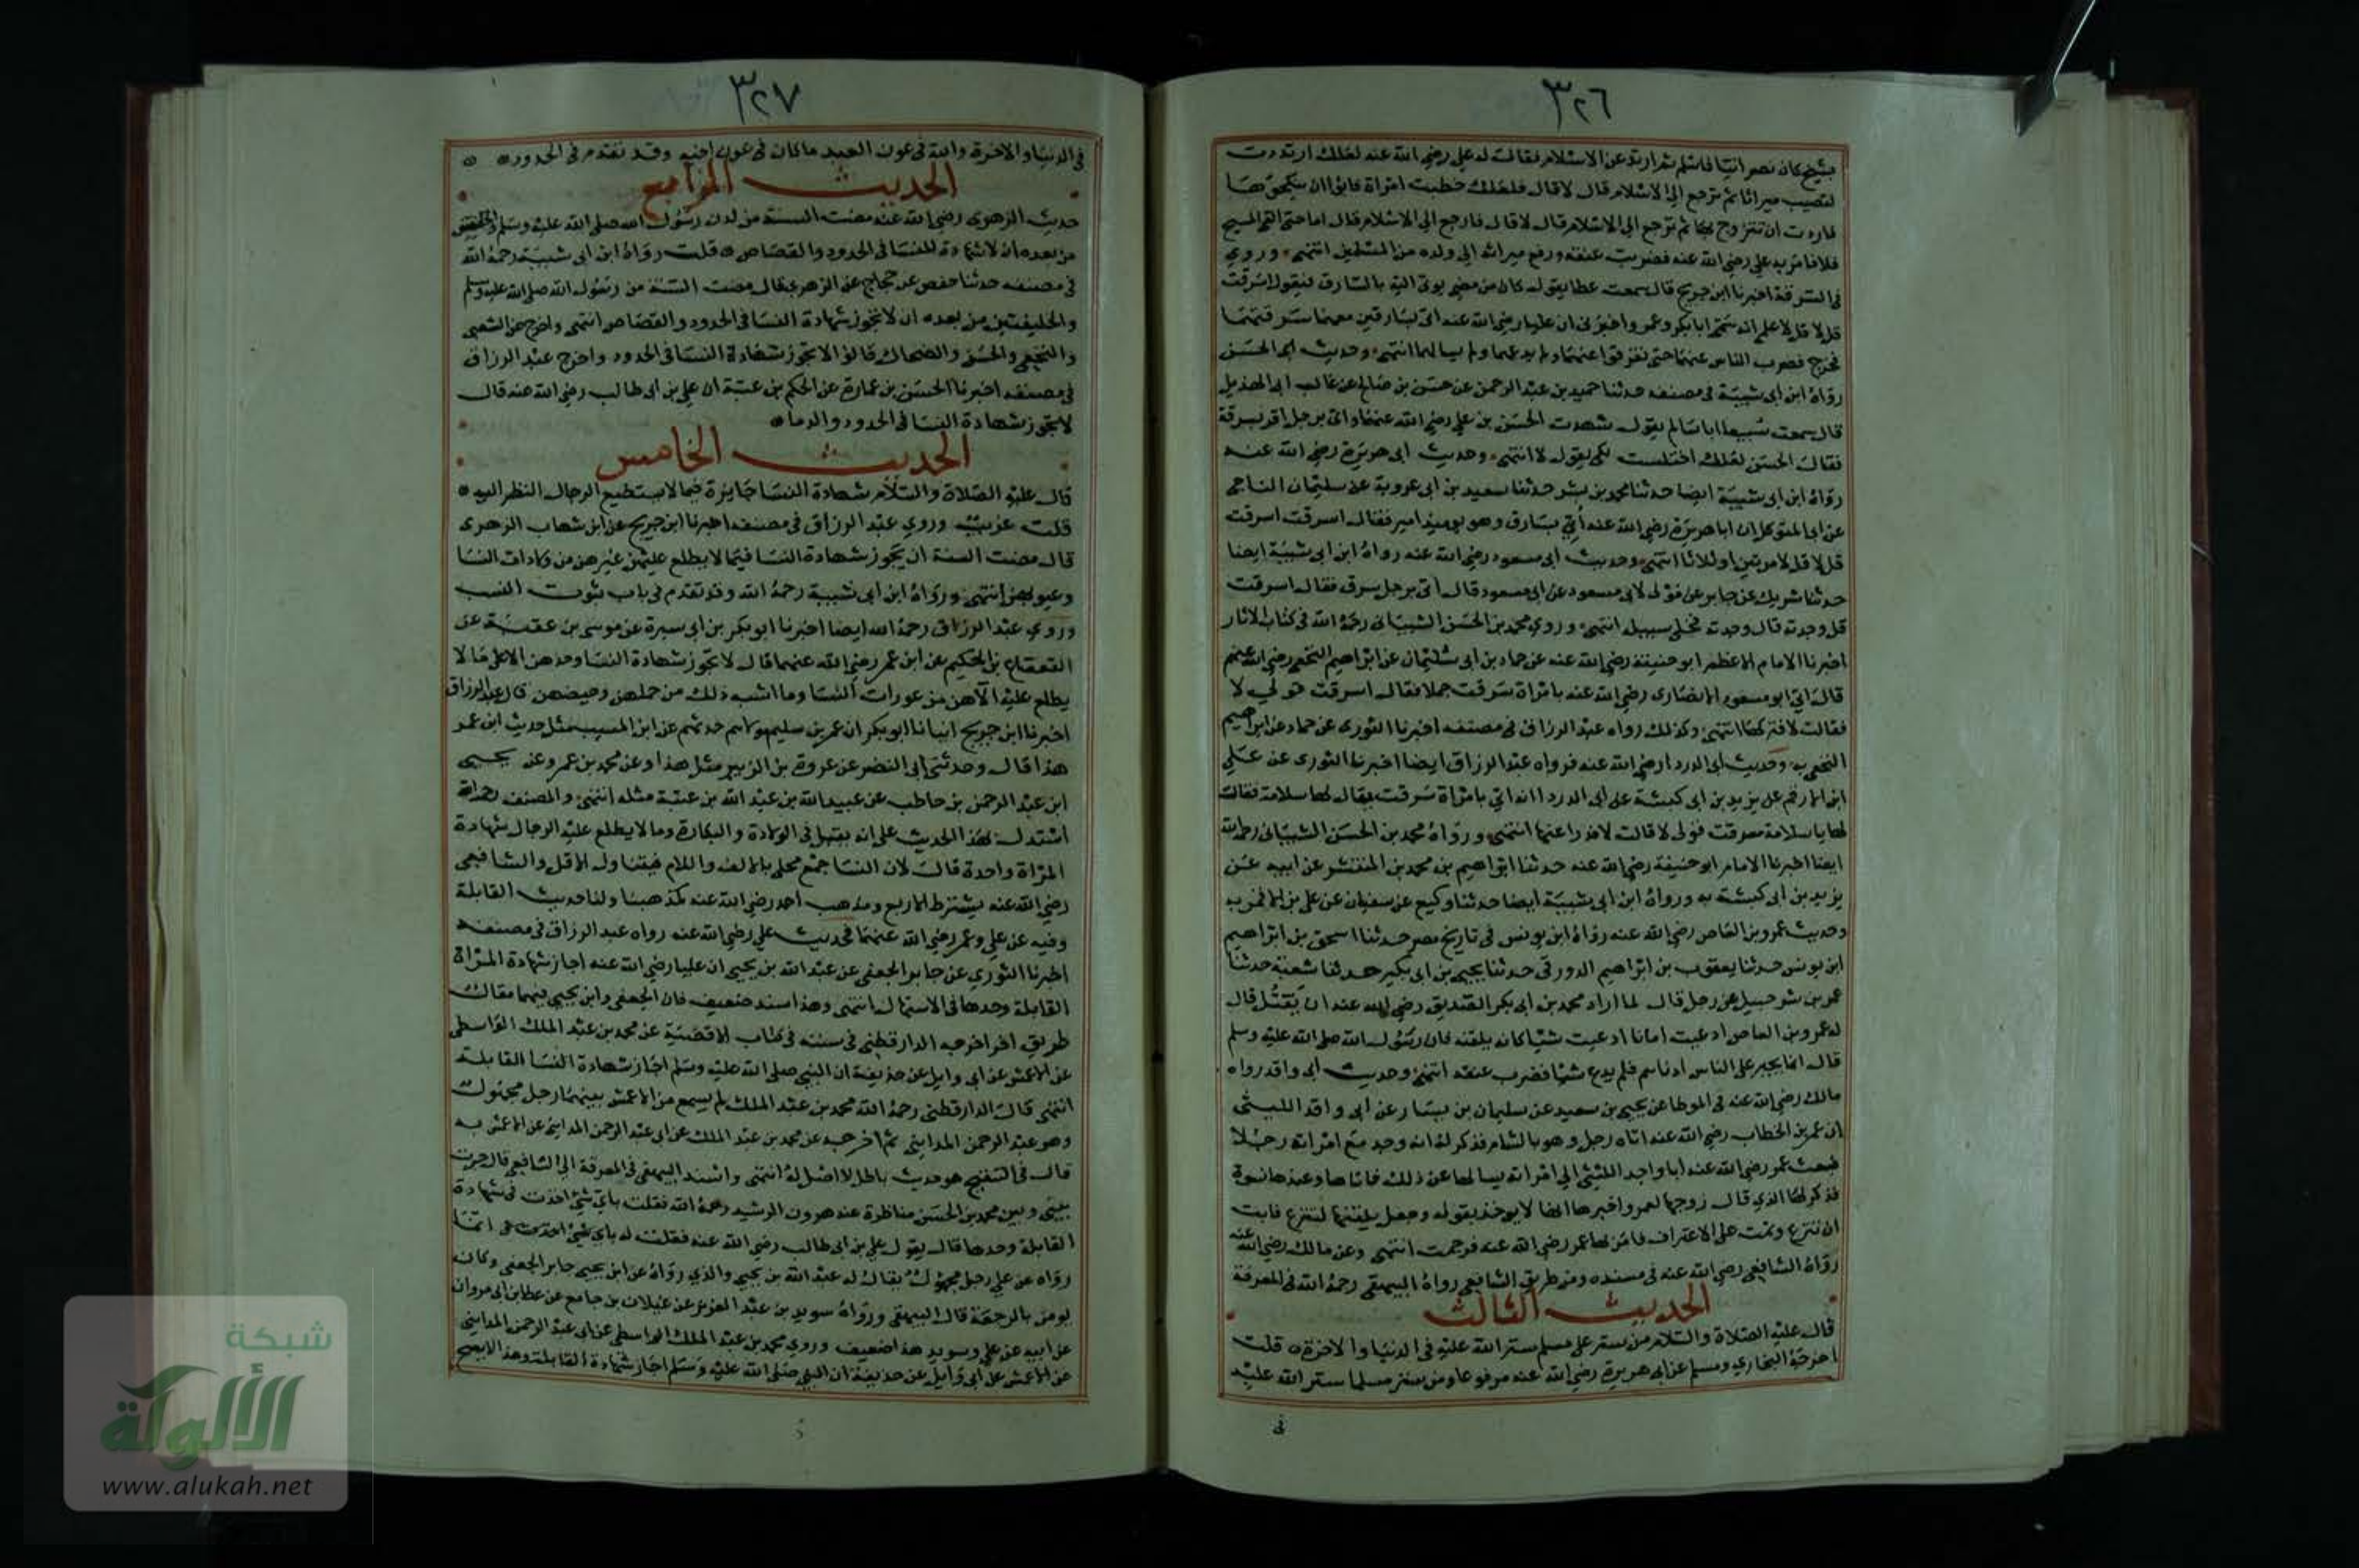 ٣٢٦
بشيخ كان نصرانيا فاسلم ثم ارتد عن الاسلام فقالت له علي رضي الله عنه لعلك ارتددت
لتصيب ميراثا ثم ترجع الي الاسلام قال لا قال فلعلك خطبت امراة فابوا ان ينكحوكها
فاردت ان تتزوج بها ثم ترجع الي الاسلام قال لا قال فارجع الي الاسلام قال اما حتي القي المسيح
فلا فامر به علي رضي الله عنه فضربت عنقه ودفع ميراثه الي ولده من المسلمين انتهي وروي
في السرقة اخبرنا ابن جريج قال سمعت عطا يقول كان من مضي يوتي اليه بالسارق فيقول اسرقت
قل لا قل لا علم انه سمي ابابكر وعمر واخبرني ان عليا رضي الله عنه اتي بسارقين معهما سرقتهما
فخرج فضرب الناس عنهما حتي تفرقوا عنهما ولم يدعهما ولم يسالهما انتهي وحديث ابي الحسن
رواه ابن ابي شيبة في مصنفه حدثنا حميد بن عبد الرحمن عن حسن بن صالح عن غالب ابي الهذيل
قال سمعت سبيعا ابا سالم يقول شهدت الحسن بن علي رضي الله عنهما واتي برجل اقر بسرقة
فقال الحسن لعلك اختلست لكي يقول لا انتهي وحديث ابي هريرة رضي الله عنه
رواه ابن ابي شيبة ايضا حدثنا محمد بن بشر حدثنا سعيد بن ابي عروبة عن سليمان الناجي
عن ابي المتوكل ان ابا هريرة رضي الله عنه أتي بسارق وهو يوميذ امير فقال اسرقت اسرقت
قل لا قل لا مرتين او ثلاثا انتهي وحديث ابي مسعود رضي الله عنه رواه ابن ابي شيبة ايضا
حدثنا شريك عن جابر عن مولي لابي مسعود عن ابي مسعود قال أتي برجل سرق فقال اسرقت
قل وجدته قال وجدته فخلي سبيله انتهي وروي محمد بن الحسن الشيباني رحمه الله في كتاب الاثار
اخبرنا الامام الاعظم ابو حنيفة رضي الله عنه عن حماد بن ابي سليمان عن ابراهيم النخعي رضي الله عنهم
قال اتي ابو مسعود الانصاري رضي الله عنه بامراة سرقت جملا فقال اسرقت قولي لا
فقالت لا فتركها انتهي وكذلك رواه عبد الرزاق في مصنفه اخبرنا الثوري عن حماد عن ابراهيم
النخعي به وحديث ابي الدردا رضي الله عنه فرواه عبد الرزاق ايضا اخبرنا الثوري عن علي
ابن الارقم عن يزيد بن ابي كبشة عن ابي الدردا انه اتي بامراة سرقت يقال لها سلامة فقالت
لها يا سلامة سرقت قولي لا قالت لا فدرا عنها انتهي ورواه محمد بن الحسن الشيباني رحمه الله
ايضا اخبرنا الامام ابو حنيفة رضي الله عنه حدثنا ابراهيم بن محمد بن المنتشر عن ابيه عن
يزيد بن ابي كبشة به ورواه ابن ابي شيبة ايضا حدثنا وكيع عن سفيان عن علي بن الاقمر به
وحديث عمرو بن العاص رضي الله عنه رواه ابن يونس في تاريخ مصر حدثنا اسحق بن ابراهيم
ابن يونس حدثنا يعقوب بن ابراهيم الدورقي حدثنا يحيي بن ابي بكير حدثنا شعبة حدثنا
عمر بن شرحبيل عن رجل قال لما اراد محمد بن ابي بكر الصديق رضي الله عنه ان يقتل قال
له عمرو بن العاص ادعيت امانا ادعيت شيا كانه يلقنه فان رسول الله صلي الله عليه وسلم
قال انما يجير علي الناس ادناهم فلم يدع شيا فضرب عنقه انتهي وحديث ابي واقد رواه
مالك رضي الله عنه في الموطا عن يحيي بن سعيد عن سليمان بن يسار عن ابي واقد الليثي
ان عمر بن الخطاب رضي الله عنه اتاه رجل وهو بالشام فذكر له انه وجد مع امراته رجلا
فبعث عمر رضي الله عنه ابا واجد الليثي الي امراته يسالها عن ذلك فاتاها وعندها نسوة
فذكر لها الذي قال زوجها لعمر واخبرها انها لا يوخذ بقوله وجعل يلقنها لتنزع فابت
ان تنزع وتمت علي الاعتراف فامر لها عمر رضي الله عنه فرجمت انتهي وعن مالك رضي الله عنه
رواه الشافعي رضي الله عنه في مسنده ومن طريق الشافعي رواه البيهقي رحمه الله في المعرفة
الحديث الثالث
قال عليه الصلاة والسلام من ستر علي مسلم ستر الله عليه في الدنيا والاخرة قلت
اخرجه البخاري ومسلم عن ابي هريرة رضي الله عنه مرفوعا ومن ستر مسلما ستر الله عليه
في
٣٢٧
في الدنيا والاخرة والله في عون العبد ماكان في عون اخيه وقد تقدم في الحدود
الحديث الرابع
حديث الزهري رضي الله عنه مضت السنة من لدن رسول الله صلي الله عليه وسلم والخليفتين
من بعده ان لا شهادة للنسا في الحدود والقصاص قلت رواه ابن ابي شيبة رحمه الله
في مصنفه حدثنا حفص عن حجاج عن الزهري قال مضت السنة من رسول الله صلي الله عليه وسلم
والخليفتين من بعده ان لا تجوز شهادة النسا في الحدود والقصاص انتهي واخرج عن الشعبي
والنخعي والحسن والضحاك قالوا لا تجوز شهادة النسا في الحدود واخرج عبد الرزاق
في مصنفه اخبرنا الحسن بن عمارة عن الحكم بن عتبة ان علي بن ابي طالب رضي الله عنه قال
لا تجوز شهادة النسا في الحدود والدما
الحديث الخامس
قال عليه الصلاة والسلام شهادة النسا جايزة فيما لا يستطيع الرجال النظر اليه
قلت غريب وروي عبد الرزاق في مصنفه اخبرنا ابن جريج عن ابن شهاب الزهري
قال مضت السنة ان يجوز شهادة النسا فيما لا يطلع عليهن غيرهن من ولادات النسا
وعيوبهن انتهي ورواه ابن ابي شيبة رحمه الله وقد تقدم في باب ثبوت النسب
وروي عبد الرزاق رحمه الله ايضا اخبرنا ابو بكر بن ابي سبرة عن موسي بن عقبة عن
القعقاع بن الحكيم عن ابن عمر رضي الله عنهما قال لا تجوز شهادة النسا وحدهن الا علي ما لا
يطلع عليه الا هن من عورات النسا وما اشبه ذلك من حملهن وحيضهن قال عبد الرزاق
اخبرنا ابن جريج انبانا ابو بكر ان عمر بن سليم مولاهم حدثهم عن ابن المسيب مثل حديث ابن عمر
هذا قال وحدثني ابي النضر عن عروة بن الزبير مثل هذا وعن محمد بن عمرو عن يحيي
ابن عبد الرحمن بن حاطب عن عبيد الله بن عبد الله بن عتبة مثله انتهي والمصنف رحمه الله
استدل بهذا الحديث علي انه يقبل في الولادة والبكارة وما لا يطلع عليه الرجال شهادة
المراة واحدة قال لان النسا جمع محلي بالالف واللام فيتناول الاقل والشافعي
رضي الله عنه يشترط الاربع ومذهب احمد رضي الله عنه كمذهبنا ولنا حديث القابلة
وفيه عن علي وعمر رضي الله عنهما فحديث علي رضي الله عنه رواه عبد الرزاق في مصنفه
اخبرنا الثوري عن جابر الجعفي عن عبد الله بن يحيي ان عليا رضي الله عنه اجاز شهادة المراة
القابلة وحدها في الاستهلال انتهي وهذا سند ضعيف فان الجعفي وابن يحيي فيهما مقال
طريق اخر اخرجه الدارقطني في سننه في كتاب الاقضية عن محمد بن عبد الملك الواسطي
عن الاعمش عن ابي وايل عن حذيفة ان النبي صلي الله عليه وسلم اجاز شهادة النسا القابلة
انتهي قال الدارقطني رحمه الله محمد بن عبد الملك لم يسمع من الاعمش بينهما رجل مجهول
وهو عبد الرحمن المدايني ثم اخرجه عن محمد بن عبد الملك عن ابي عبد الرحمن المدايني عن الاعمش به
قال في التنقيح هو حديث باطل لا اصل له انتهي واسند البيهقي في المعرفة الي الشافعي قال جرت
بيني وبين محمد بن الحسن مناظرة عند هرون الرشيد رحمه الله فقلت باي شي اخذت في شهادة
القابلة وحدها قال يقول علي بن ابي طالب رضي الله عنه فقلت له باي شي اخذت علي انما
رواه عن علي رجل مجهول يقال له عبد الله بن يحيي والذي رواه عن ابن يحيي جابر الجعفي وكان
يومن بالرجعة قال البيهقي ورواه سويد بن عبد العزيز عن غيلان بن جامع عن عطا بن ابي مروان
عن ابيه عن علي وسويد هذا ضعيف وروي محمد بن عبد الملك الواسطي عن ابي عبد الرحمن المدايني
عن الاعمش عن ابي وايل عن حذيفة ان النبي صلي الله عليه وسلم اجاز شهادة القابلة وهذا لا يصح
شبكة
الألوكة
www.alukah.net